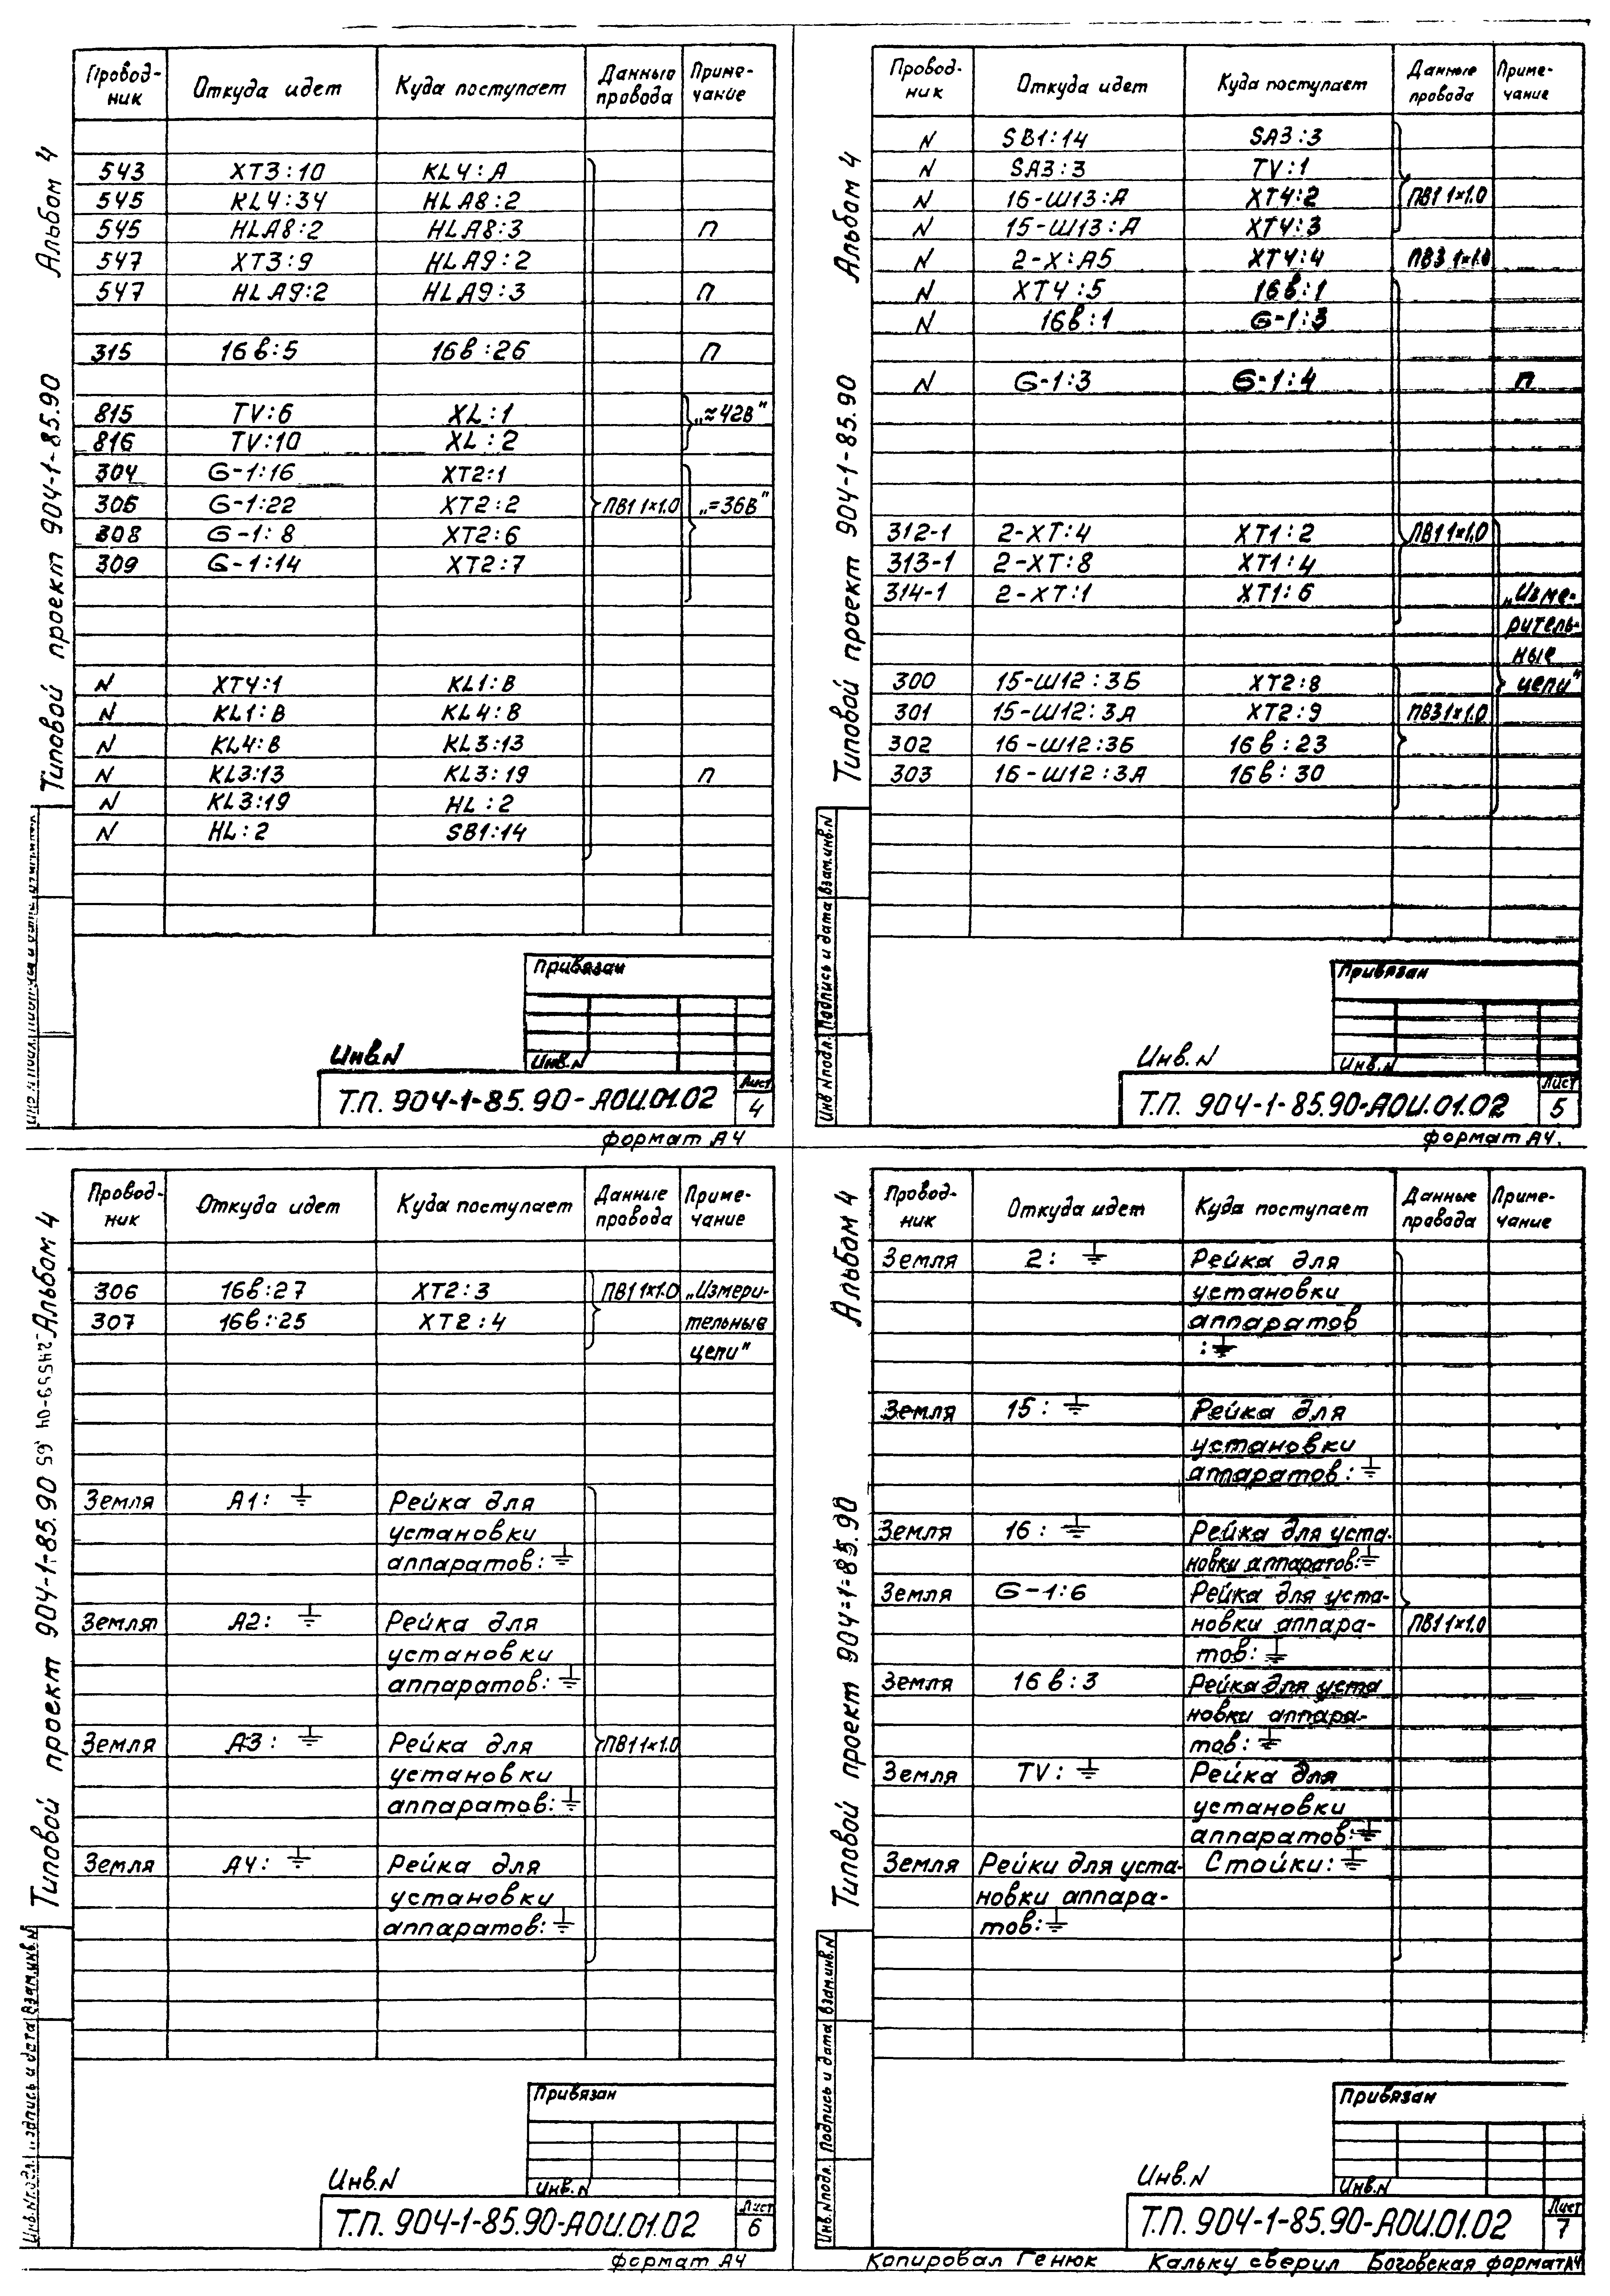 Альбом 4
Типовой проект 904-1-85.90
Провод-ник Откуда идет Куда поступает Данные провода Приме-чание
543 XT3:10 KL4:A
545 KL4:34 HLA8:2
545 HLA8:2 HLA8:3 П
547 XT3:9 HLA9:2
547 HLA9:2 HLA9:3 П
315 16в:5 16в:26 П
815 TV:6 XL:1 „≈42В"
816 TV:10 XL:2
304 G-1:16 XT2:1
305 G-1:22 XT2:2 ПВ1 1×1.0 „=36В"
308 G-1:8 XT2:6
309 G-1:14 XT2:7
N XT4:1 KL1:B
N KL1:B KL4:B
N KL4:B KL3:13
N KL3:13 KL3:19 П
N KL3:19 HL:2
N HL:2 SB1:14
Привязан
Инв.N
Инв.N
Т.П. 904-1-85.90-АОИ.01.02 Лист 4
формат А4
Альбом 4
Типовой проект 904-1-85.90
Инв N подл. Подпись и дата Взам.инв.N
Провод-ник Откуда идет Куда поступает Данные провода Приме-чание
N SB1:14 SA3:3
N SA3:3 TV:1
N 16-Ш13:А XT4:2 ПВ1 1×1.0
N 15-Ш13:А XT4:3
N 2-X:A5 XT4:4 ПВ3 1×1.0
N XT4:5 16в:1
N 16в:1 G-1:3
N G-1:3 G-1:4 П
312-1 2-XT:4 XT1:2 ПВ1 1×1.0
313-1 2-XT:8 XT1:4
314-1 2-XT:1 XT1:6 „Изме-
ритель-
ные
300 15-Ш12:3Б XT2:8 цепи"
301 15-Ш12:3А XT2:9 ПВ3 1×1.0
302 16-Ш12:3Б 16в:23
303 16-Ш12:3А 16в:30
Привязан
Инв.N
Инв.N
Т.П. 904-1-85.90-АОИ.01.02 Лист 5
формат А4.
Альбом 4
24559-04 55
Типовой проект 904-1-85.90
Взам.инв.N
Провод-ник Откуда идет Куда поступает Данные провода Приме-чание
306 16в:27 XT2:3 ПВ1 1×1.0 „Измери-
307 16в:25 XT2:4 тельные
цепи"
Земля А1: ⏚ Рейка для
установки
аппаратов: ⏚
Земля А2: ⏚ Рейка для
установки
аппаратов: ⏚
Земля А3: ⏚ Рейка для ПВ1 1×1.0
установки
аппаратов: ⏚
Земля А4: ⏚ Рейка для
установки
аппаратов: ⏚
Привязан
Инв.N
Инв.N
Т.П. 904-1-85.90-АОИ.01.02 Лист 6
формат А4
Альбом 4
Типовой проект 904-1-85.90
Инв.N подл. Подпись и дата Взам.инв.N
Провод-ник Откуда идет Куда поступает Данные провода Приме-чание
Земля 2: ⏚ Рейка для
установки
аппаратов
: ⏚
Земля 15: ⏚ Рейка для
установки
аппаратов: ⏚
Земля 16: ⏚ Рейка для уста-
новки аппаратов: ⏚
Земля G-1:6 Рейка для уста-
новки аппара- ПВ1 1×1.0
тов: ⏚
Земля 16в:3 Рейка для уста
новки аппара-
тов: ⏚
Земля TV: ⏚ Рейка для
установки
аппаратов: ⏚
Земля Рейки для уста- Стойки: ⏚
новки аппара-
тов: ⏚
Привязан
Инв.N
Инв.N
Т.П. 904-1-85.90-АОИ.01.02 Лист 7
Копировал Генюк Кальку сверил Боговская формат А4